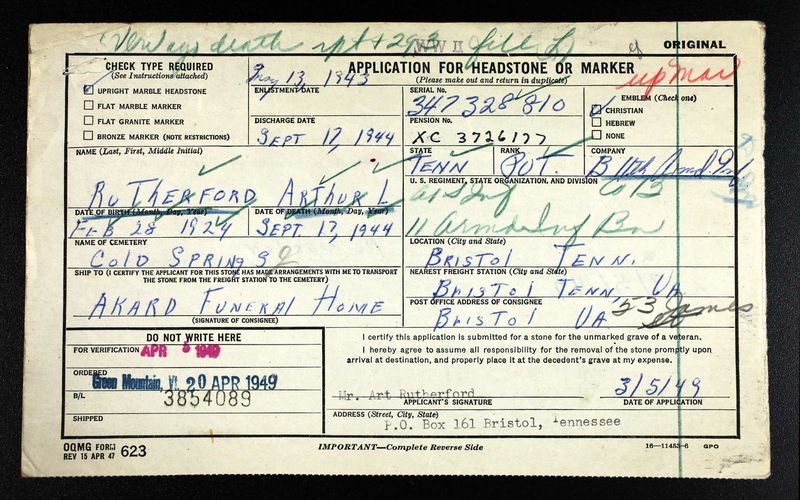 death rpt + 293 WW II file
ORIGINAL
CHECK TYPE REQUIRED
(See Instructions attached)
UPRIGHT MARBLE HEADSTONE
FLAT MARBLE MARKER
FLAT GRANITE MARKER
BRONZE MARKER (NOTE RESTRICTIONS)
May 13, 1943
ENLISTMENT DATE
DISCHARGE DATE
SEPT 17, 1944
APPLICATION FOR HEADSTONE OR MARKER
(Please make out and return in duplicate)
up mar
SERIAL No.
34732 8810
PENSION No.
XC 3726177
EMBLEM (Check one)
CHRISTIAN
HEBREW
NONE
STATE RANK COMPANY
TENN PVT. B 11th Armd. Inf.
NAME (Last, First, Middle Initial)
RUTHERFORD ARTHUR L
U. S. REGIMENT, STATE ORGANIZATION, AND DIVISION
Co B
11 Armd Inf Bn
DATE OF BIRTH (Month, Day, Year) DATE OF DEATH (Month, Day, Year)
FEB 28 1924 SEPT 17, 1944
NAME OF CEMETERY
COLD SPRINGS
LOCATION (City and State)
BRISTOL TENN.
SHIP TO (I CERTIFY THE APPLICANT FOR THIS STONE HAS MADE ARRANGEMENTS WITH ME TO TRANSPORT
THE STONE FROM THE FREIGHT STATION TO THE CEMETERY)
AKARD FUNERAL HOME
(SIGNATURE OF CONSIGNEE)
NEAREST FREIGHT STATION (City and State)
BRISTOL TENN, VA
POST OFFICE ADDRESS OF CONSIGNEE
BRISTOL VA 53 James St
DO NOT WRITE HERE
FOR VERIFICATION APR 5 1949
ORDERED
Green Mountain, Vt. 20 APR 1949
B/L 3854089
SHIPPED
I certify this application is submitted for a stone for the unmarked grave of a veteran.
I hereby agree to assume all responsibility for the removal of the stone promptly upon
arrival at destination, and properly place it at the decedent's grave at my expense.
Mr. Art Rutherford 3/5/49
APPLICANT'S SIGNATURE DATE OF APPLICATION
ADDRESS (Street, City, State)
P.O. Box 161 Bristol, Tennessee
OQMG FORM 623
REV 15 APR 47
IMPORTANT—Complete Reverse Side
16—11453-6 GPO